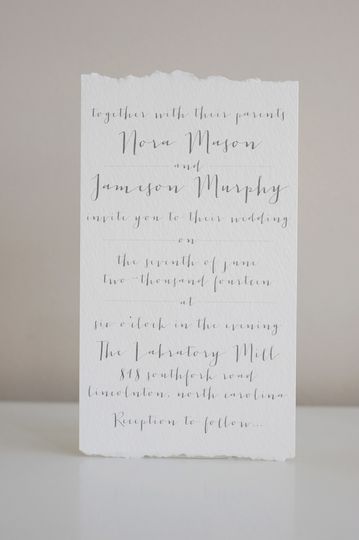 together with their parents
Nora Mason
and
Jameson Murphy
invite you to their wedding
on
the seventh of june
two-thousand fourteen
at
six o'clock in the evening
The Labratory Mill
818 southfork road
lincolnton, north carolina
Reception to follow...